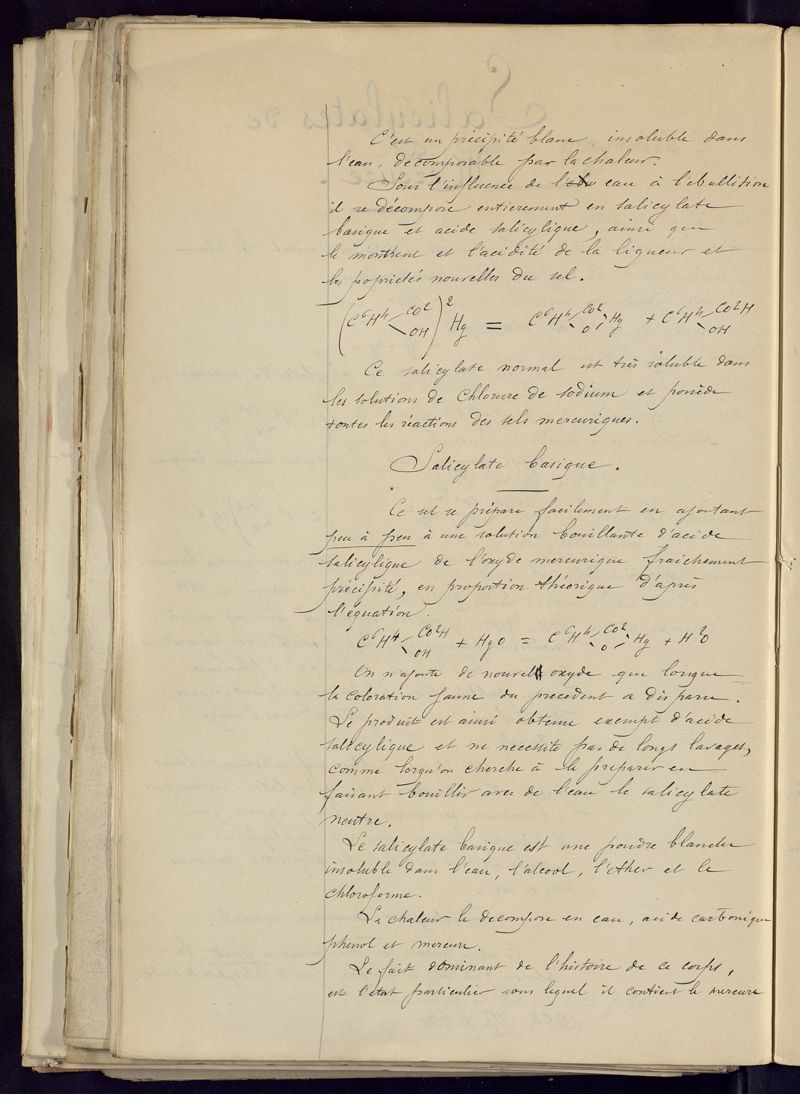 C'est un précipité blanc, insoluble dans
l'eau, décomposable par la chaleur.
Sous l'influence de l' eau à l'ebullition
il se décompose entierement en salicylate
basique et acide salicylique, ainsi que
le montrent et l'acidité de la liqueur et
les proprietés nouvelles du sel.
(C⁶H⁴ CO² OH)² Hg = C⁶H⁴ CO² O Hg + C⁶H⁴ CO²H OH
Ce salicylate normal est très soluble dans
les solutions de Chlorure de Sodium et possède
toutes les réactions des sels mercuriques.
Salicylate basique.
Ce sel se prépare facilement en ajoutant
peu à peu à une solution bouillante d'acide
salicylique de l'oxyde mercurique fraichement
précipité, en proportion théorique d'après
l'équation.
C⁶H⁴ CO²H OH + HgO = C⁶H⁴ CO² O Hg + H²O
On n'ajoute de nouvel oxyde que lorsque
la coloration jaune du precedent a disparu.
Le produit est ainsi obtenu exempt d'acide
salicylique et ne necessite pas de longs lavages,
comme lorsqu'on cherche à le preparer en
faisant bouillir avec de l'eau le salicylate
neutre.
Le salicylate basique est une poudre blanche
insoluble dans l'eau, l'alcool, l'ether et le
chloroforme.
La chaleur le decompose en eau, acide carbonique
phenol et mercure.
Le fait dominant de l'histoire de ce corps,
est l'état particulier sous lequel il contient le mercure